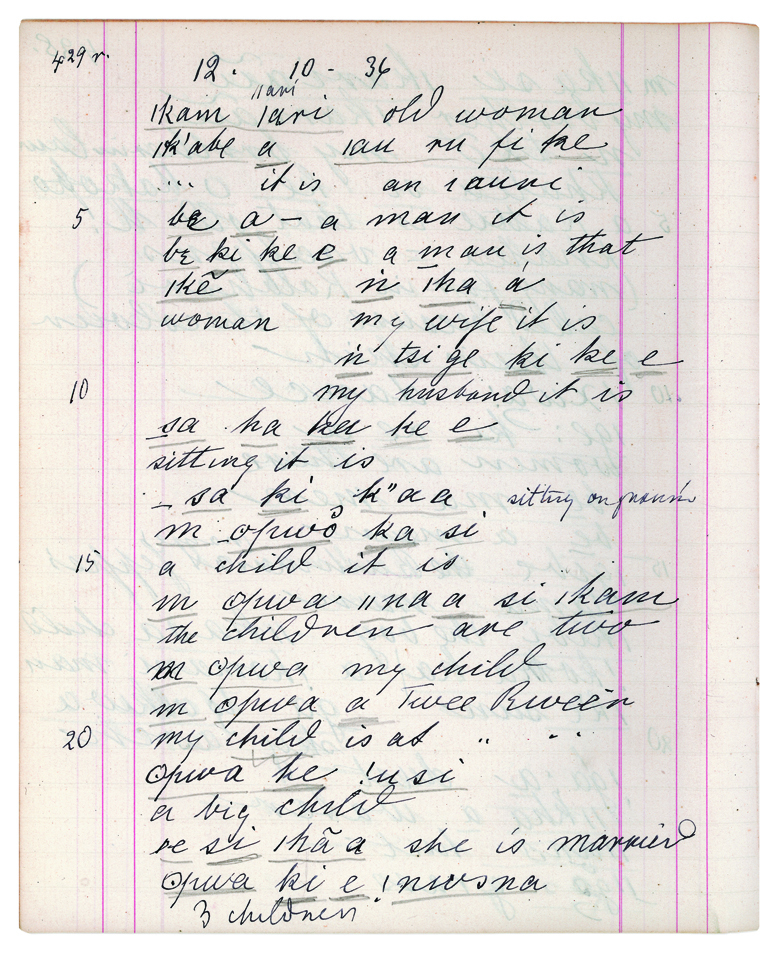 429 r.
12. 10 - 36
ǁari
ǀkam ǀari old woman
ǀk'abe a ǀau ru fi ke
... it is an ǀauni
5 be a – a man it is
be ki ke e a man is that
ǀkẽ ṅ ǀha á
woman my wife it is
ṅ tsi ge ki ke e
10 my husband it is
sa ha ka ke e
sitting it is
– sa ki k"aa sitting on
m ʘpwõ ka si
15 a child it is
m ʘpwa ǁna a si ǀkam
the children are two
m ʘpwa my child
m ʘpwa a Twee Rweër
20 my child is at " " "
ʘpwa ke !u si
a big child
se si ǀhã a she is married
ʘpwa ki e !nwona
3 children